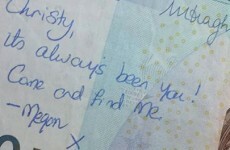 Christy,
its always been you!
Come and find me.
-Megan X